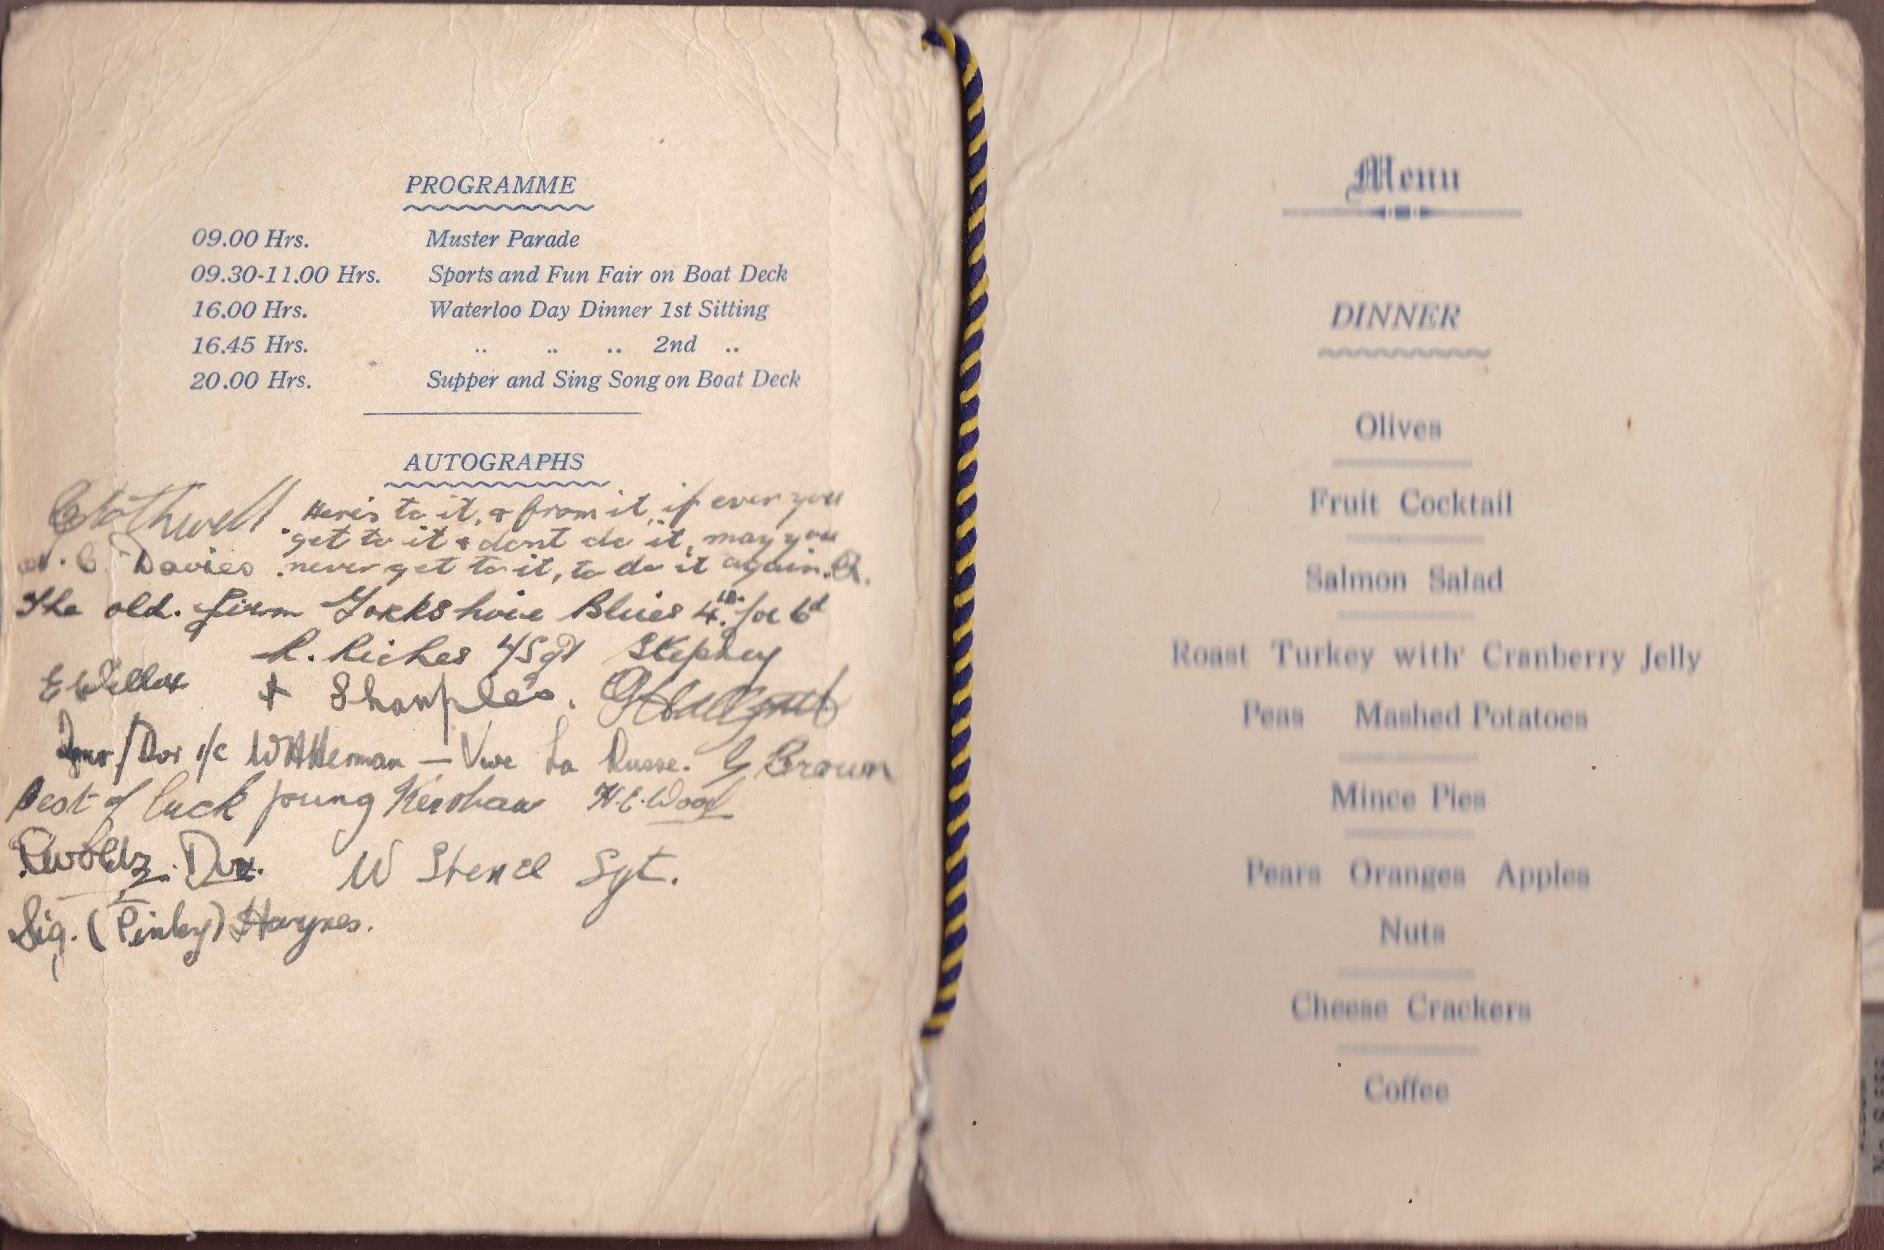 PROGRAMME
09.00 Hrs. Muster Parade
09.30-11.00 Hrs. Sports and Fun Fair on Boat Deck
16.00 Hrs. Waterloo Day Dinner 1st Sitting
16.45 Hrs. .. .. .. 2nd ..
20.00 Hrs. Supper and Sing Song on Boat Deck
AUTOGRAPHS
Here's to it, & from it, if ever you
get to it & dont do it, may you
never get to it, to do it again.
Davies
The old. firm Yorkshire Blues 4 for 6d
R. Riches L/Sgt Stepney
& Sharples.
Dvr i/c W H Herman — Vive La Russe. G Brown
Best of luck young Kershaw H. C. Wood
W Stencl Sgt.
Sig. (Pinky) Haynes.
Menu
DINNER
Olives
Fruit Cocktail
Salmon Salad
Roast Turkey with Cranberry Jelly
Peas Mashed Potatoes
Mince Pies
Pears Oranges Apples
Nuts
Cheese Crackers
Coffee